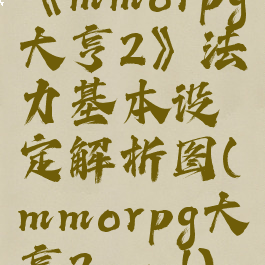 《mmorpg
大亨2》法
力基本设
定解析图(
mmorpg大